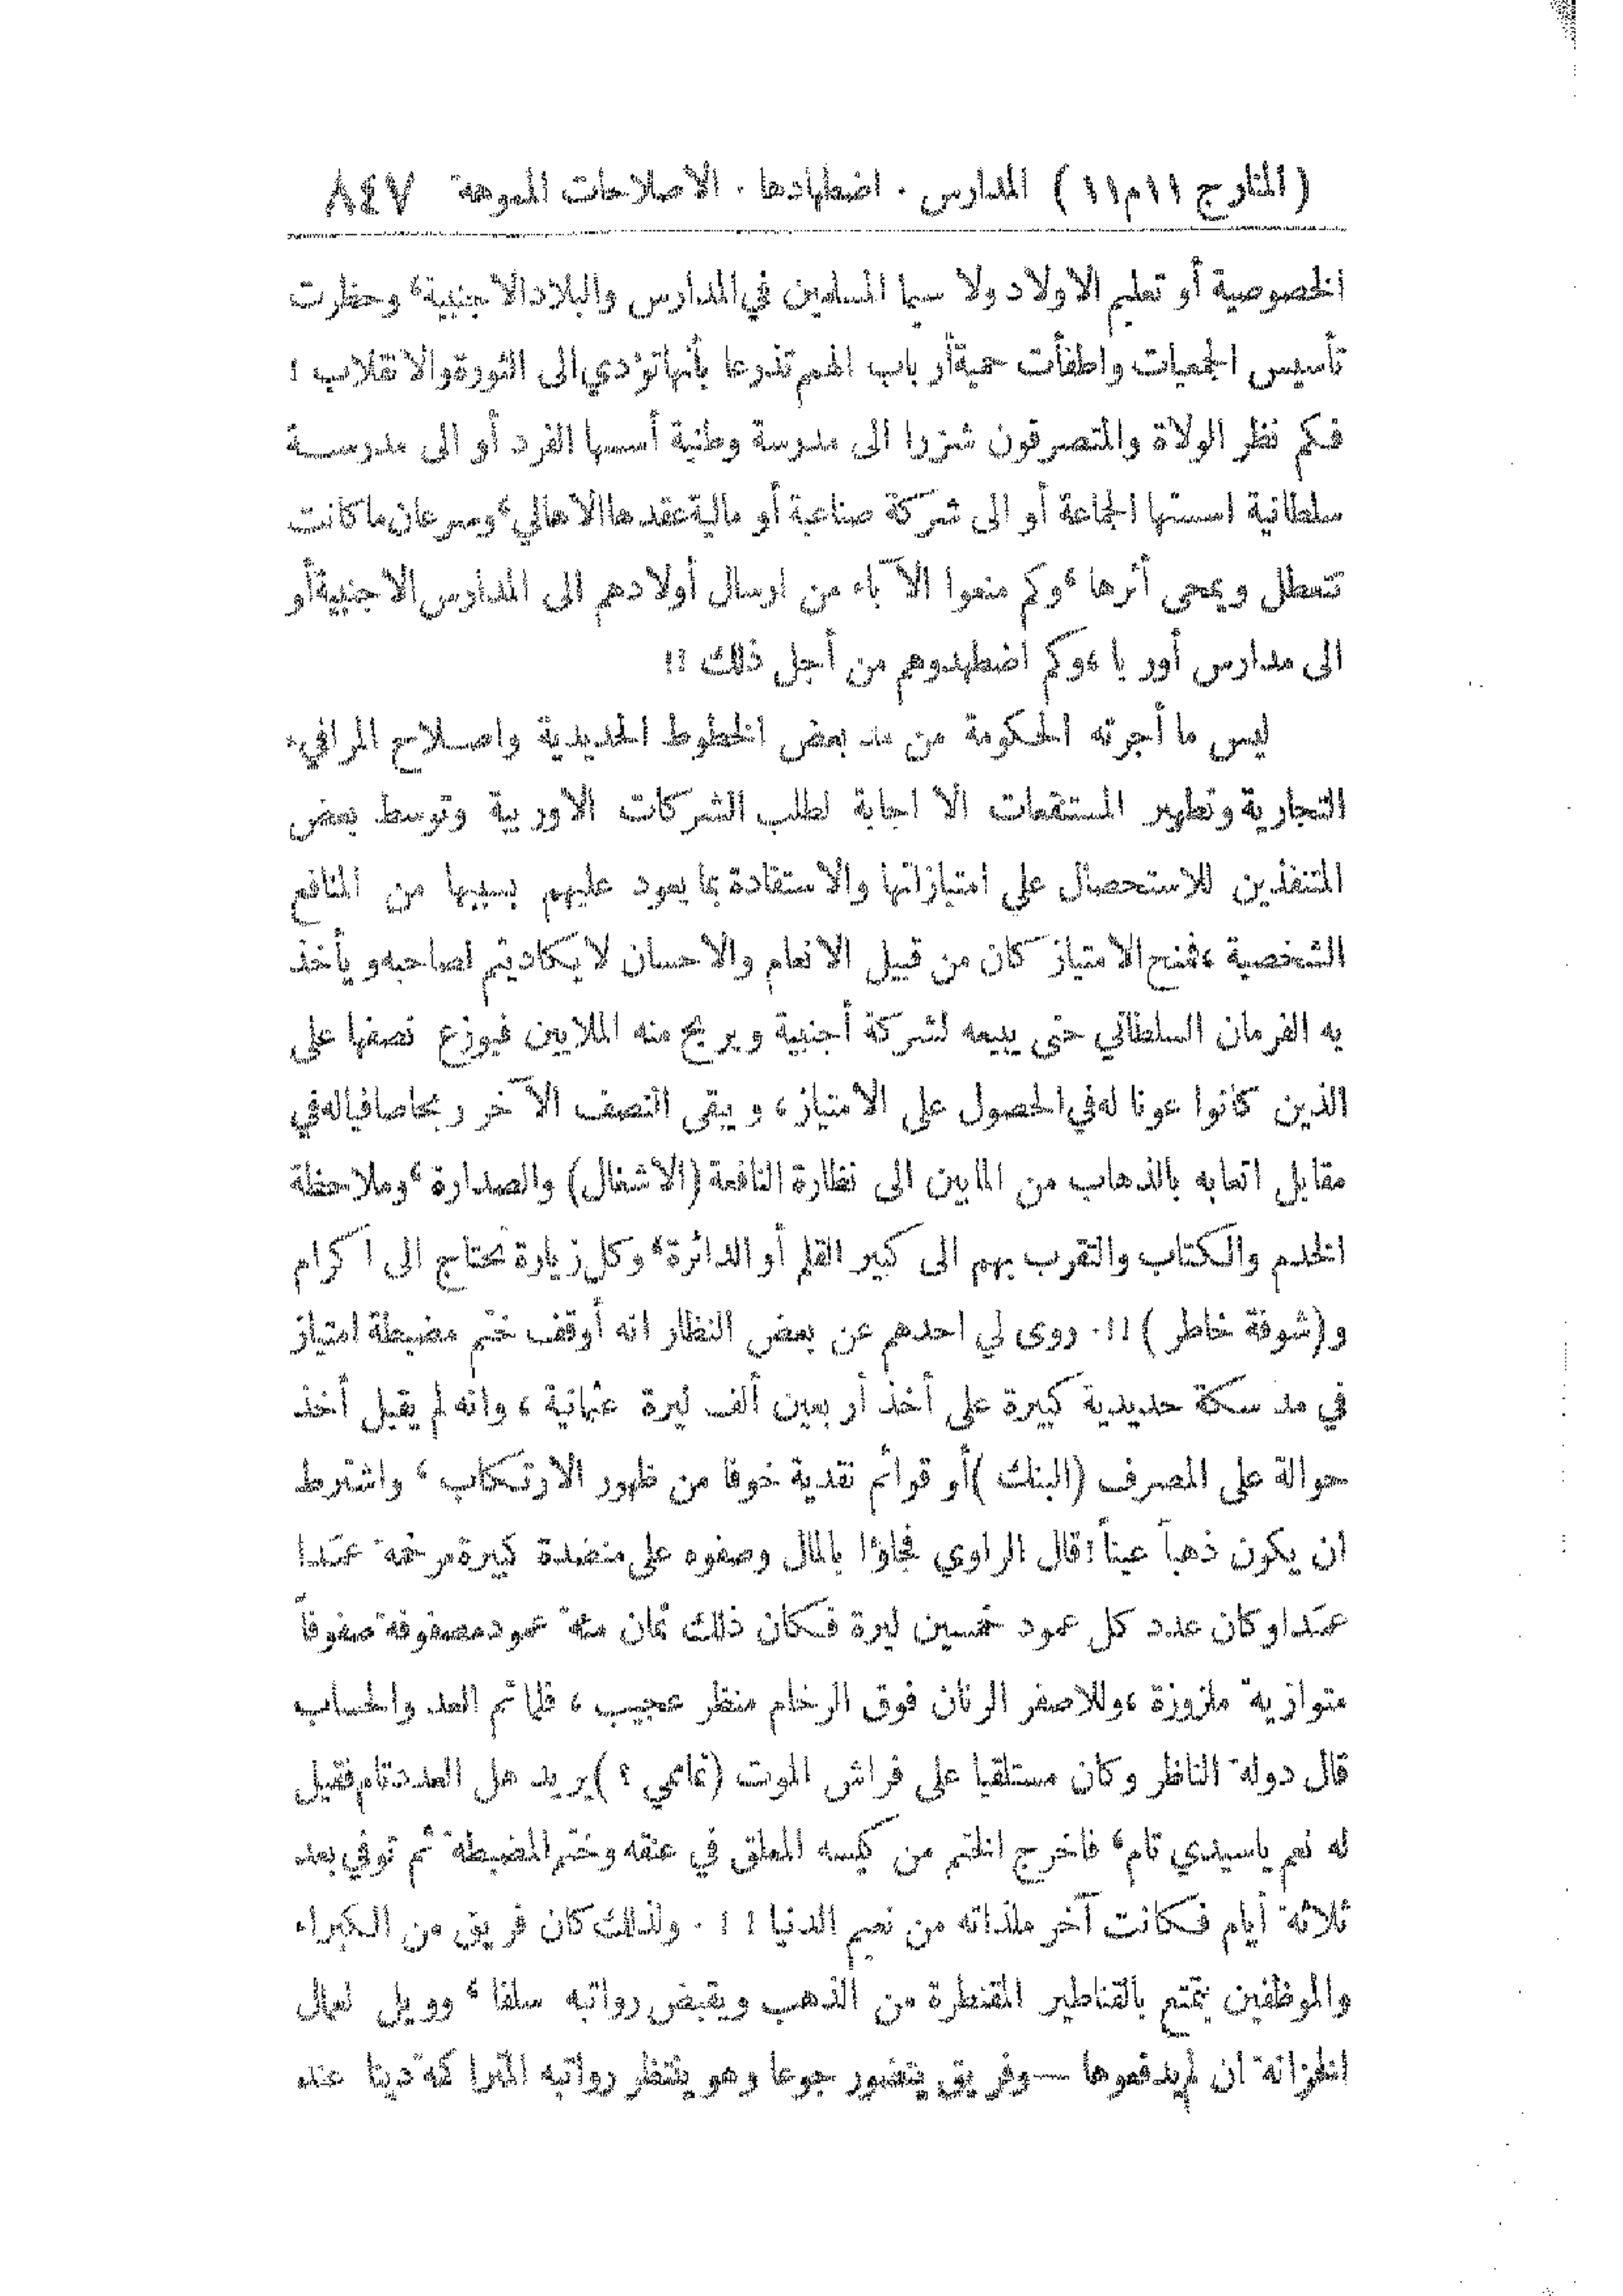 (المنارج ١١م١١) المدارس . اضطهادها . الاصلاحات المموهة ٨٤٧
الخصوصية أو تعليم الاولاد ولا سيما المسلمين في المدارس والبلاد الاجنبية، وحظرت
تأسيس الجمعيات واطفأت حمية أرباب الهمم تذرعا بأنها تؤدي الى الثورة والانقلاب :
فكم نظر الولاة والمتصرفون شزرا الى مدرسة وطنية أسسها الفرد أو الى مدرسة
سلطانية اسستها الجماعة أو الى شركة صناعية أو مالية عقدها الاهالي، وسرعان ما كانت
تتعطل ويمحى أثرها، وكم منعوا الآباء من ارسال أولادهم الى المدارس الاجنبية أو
الى مدارس أوربا، وكم اضطهدوهم من أجل ذلك !!
ليس ما أجرته الحكومة من مد بعض الخطوط الحديدية واصلاح المرافيء
التجارية وتطهير المستنقعات الا اجابة لطلب الشركات الاوربية وتوسط بعض
المتنفذين للاستحصال على امتيازاتها والاستفادة بما يعود عليهم بسببها من المنافع
الشخصية، فمنح الامتياز كان من قبيل الانعام والاحسان لا يكاد يتم لصاحبه ويأخذ
به الفرمان السلطاني حتى يبيعه لشركة أجنبية ويربح منه الملايين فيوزع نصفها على
الذين كانوا عونا له في الحصول على الامتياز، ويبقى النصف الآخر ربحا صافيا له في
مقابل اتعابه بالذهاب من المابين الى نظارة النافعة (الاشغال) والصدارة، وملاحظة
الخدم والكتاب والتقرب بهم الى كبير القلم أو الدائرة، وكل زيارة تحتاج الى اكرام
و(شوفة خاطر) !!. روى لي احدهم عن بعض النظار انه أوقف ختم مضبطة امتياز
في مد سكة حديدية كبيرة على أخذ أربعين ألف ليرة عثمانية، وانه لم يقبل أخذ
حوالة على المصرف (البنك) أو قوائم نقدية خوفا من ظهور الارتكاب، واشترط
ان يكون ذهباً عيناً: قال الراوي فجاؤا بالمال وصفوه على منضدة كبيرة مرخمة عمدا
عمدا وكان عدد كل عمود خمسين ليرة فكان ذلك ثمان مئة عمود مصفوفة صفوفاً
متوازية ملزوزة، وللاصفر الرنان فوق الرخام منظر عجيب، فلما تم العد والحساب
قال دولة الناظر وكان مستلقيا على فراش الموت (تمامي ؟) يريد هل العدد تام فقيل
له نعم ياسيدي تام، فاخرج الختم من كيسه المعلق في عنقه وختم المضبطة ثم توفي بعد
ثلاثة أيام فكانت آخر ملذاته من نعيم الدنيا !! . ولذلك كان فريق من الكبراء
والموظفين يتمتع بالقناطير المقنطرة من الذهب ويقبض رواتبه سلفا، وويل لعمال
الخزانة ان لم يدفعوها — وفريق يتضور جوعا وهو ينتظر رواتبه المتراكمة دينا عند